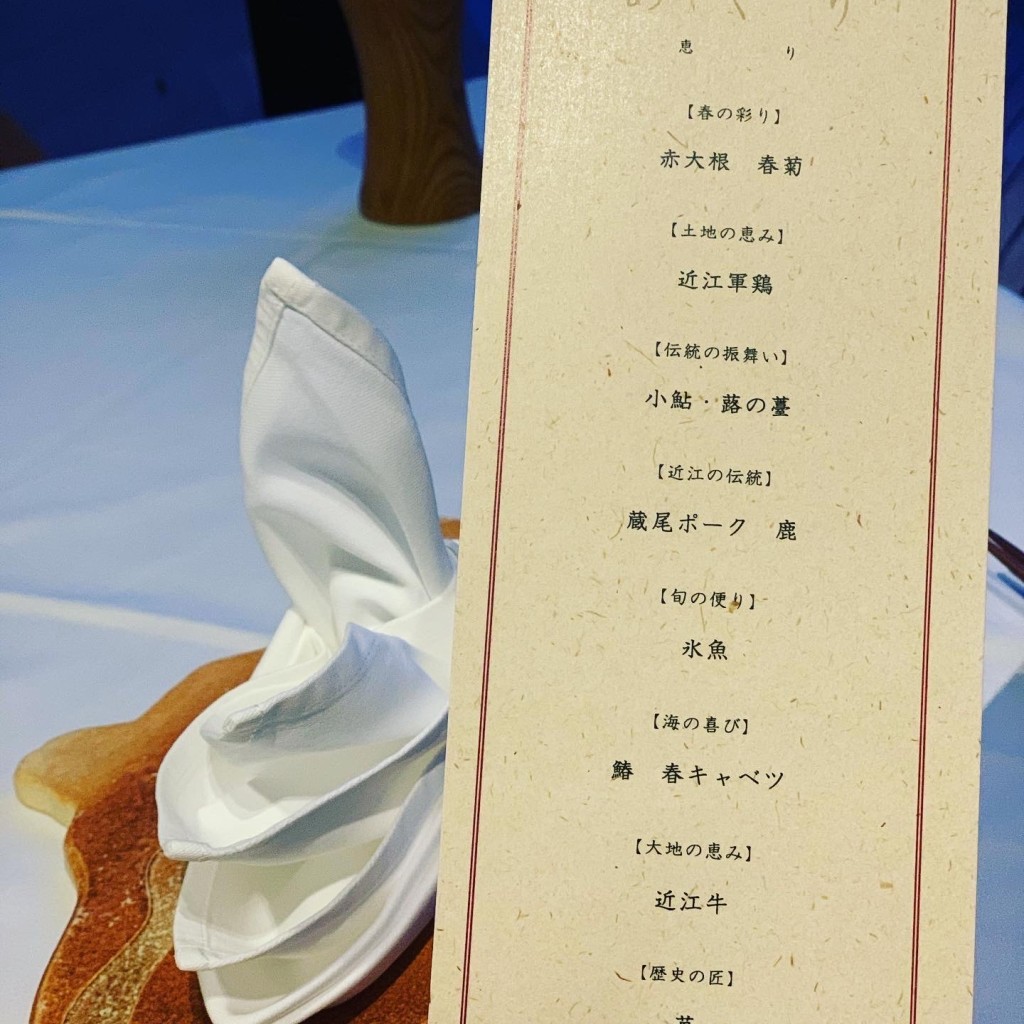 恵 り
【春の彩り】
赤大根 春菊
【土地の恵み】
近江軍鶏
【伝統の振舞い】
小鮎・蕗の薹
【近江の伝統】
蔵尾ポーク 鹿
【旬の便り】
氷魚
【海の喜び】
鰆 春キャベツ
【大地の恵み】
近江牛
【歴史の匠】